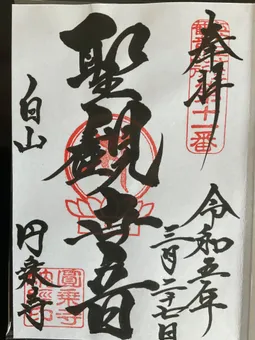 奉拝
令和五年
三月二十七日
聖観世音
白山
円乗寺
圓乗寺